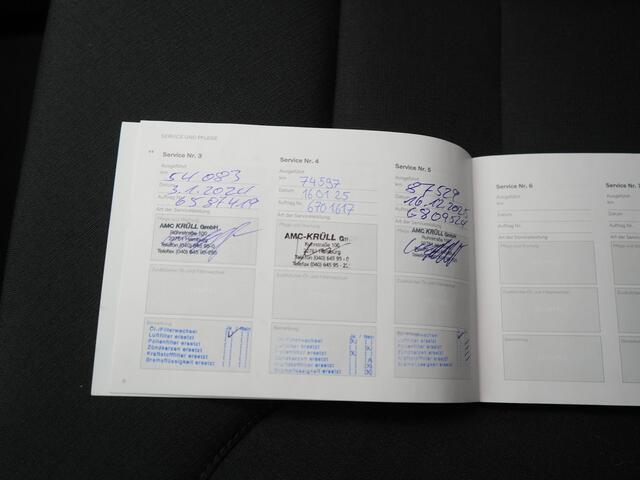 SERVICE UND PFLEGE
Service Nr. 3
Ausgeführt
km 54 083
Datum 3.1.2024
Auftrag Nr. 6587419
Art der Serviceleistung:
AMC KRÜLL GmbH
Ruhrstraße 100
22761 Hamburg
Telefon (040) 645 95-0
Zusätzlicher Öl- und Filterwechsel
Bemerkung
Ja / Nein
Öl-/Filterwechsel
Luftfilter ersetzt
Pollenfilter ersetzt
Zündkerzen ersetzt
Kraftstofffilter ersetzt
Bremsflüssigkeit ersetzt
Service Nr. 4
Ausgeführt
km 74597
Datum 16.01.25
Auftrag Nr. 6701617
Art der Serviceleistung:
AMC-KRÜLL
Ruhrstraße 100
22761 Hamburg
Telefon (040) 645 95 - 0
Telefax (040) 645 95 - 2
Zusätzlicher Öl- und Filterwechsel
Bemerkung
Öl-/Filterwechsel
Luftfilter ersetzt
Pollenfilter ersetzt
Zündkerzen ersetzt
Kraftstofffilter ersetzt
Bremsflüssigkeit ersetzt
Service Nr. 5
Ausgeführt
km 87529
16.12.2025
6809524
Art der Serviceleistung:
AMC KRÜLL GmbH
Ruhrstraße 100
Zusätzlicher Öl- und Filterwechsel
Bemerkung
Öl-/Filterwechsel
Luftfilter ersetzt
Pollenfilter ersetzt
Zündkerzen ersetzt
Kraftstofffilter ersetzt
Bremsflüssigkeit ersetzt
Service Nr. 6
Ausgeführt
km
Datum
Auftrag Nr.
Art der Serviceleistung:
Pflege und Wartung
Zusätzlicher Öl- und Filterwechsel
Bemerkung
Service Nr. 7
Ausgeführt
km
Datum
Auftrag Nr.